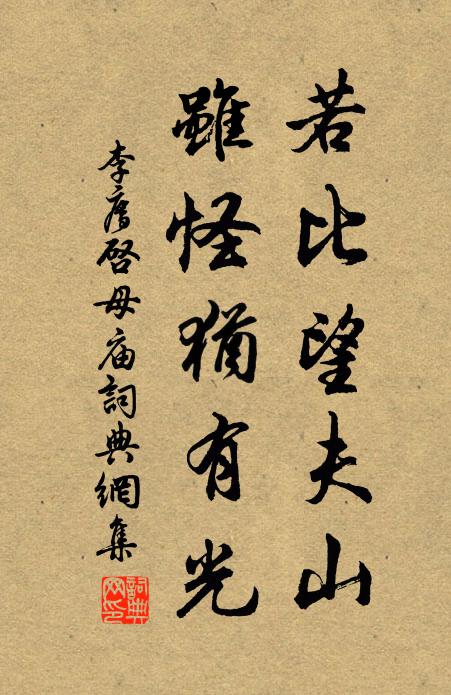 若比望夫山
雖怪猶有光
李廌啓母庙詞典網集
詞典網印